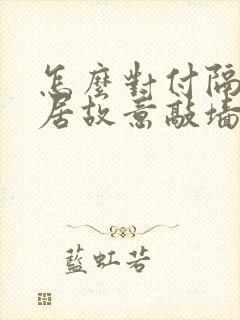 怎麼對付隔
居故意敲墙
藍虹若